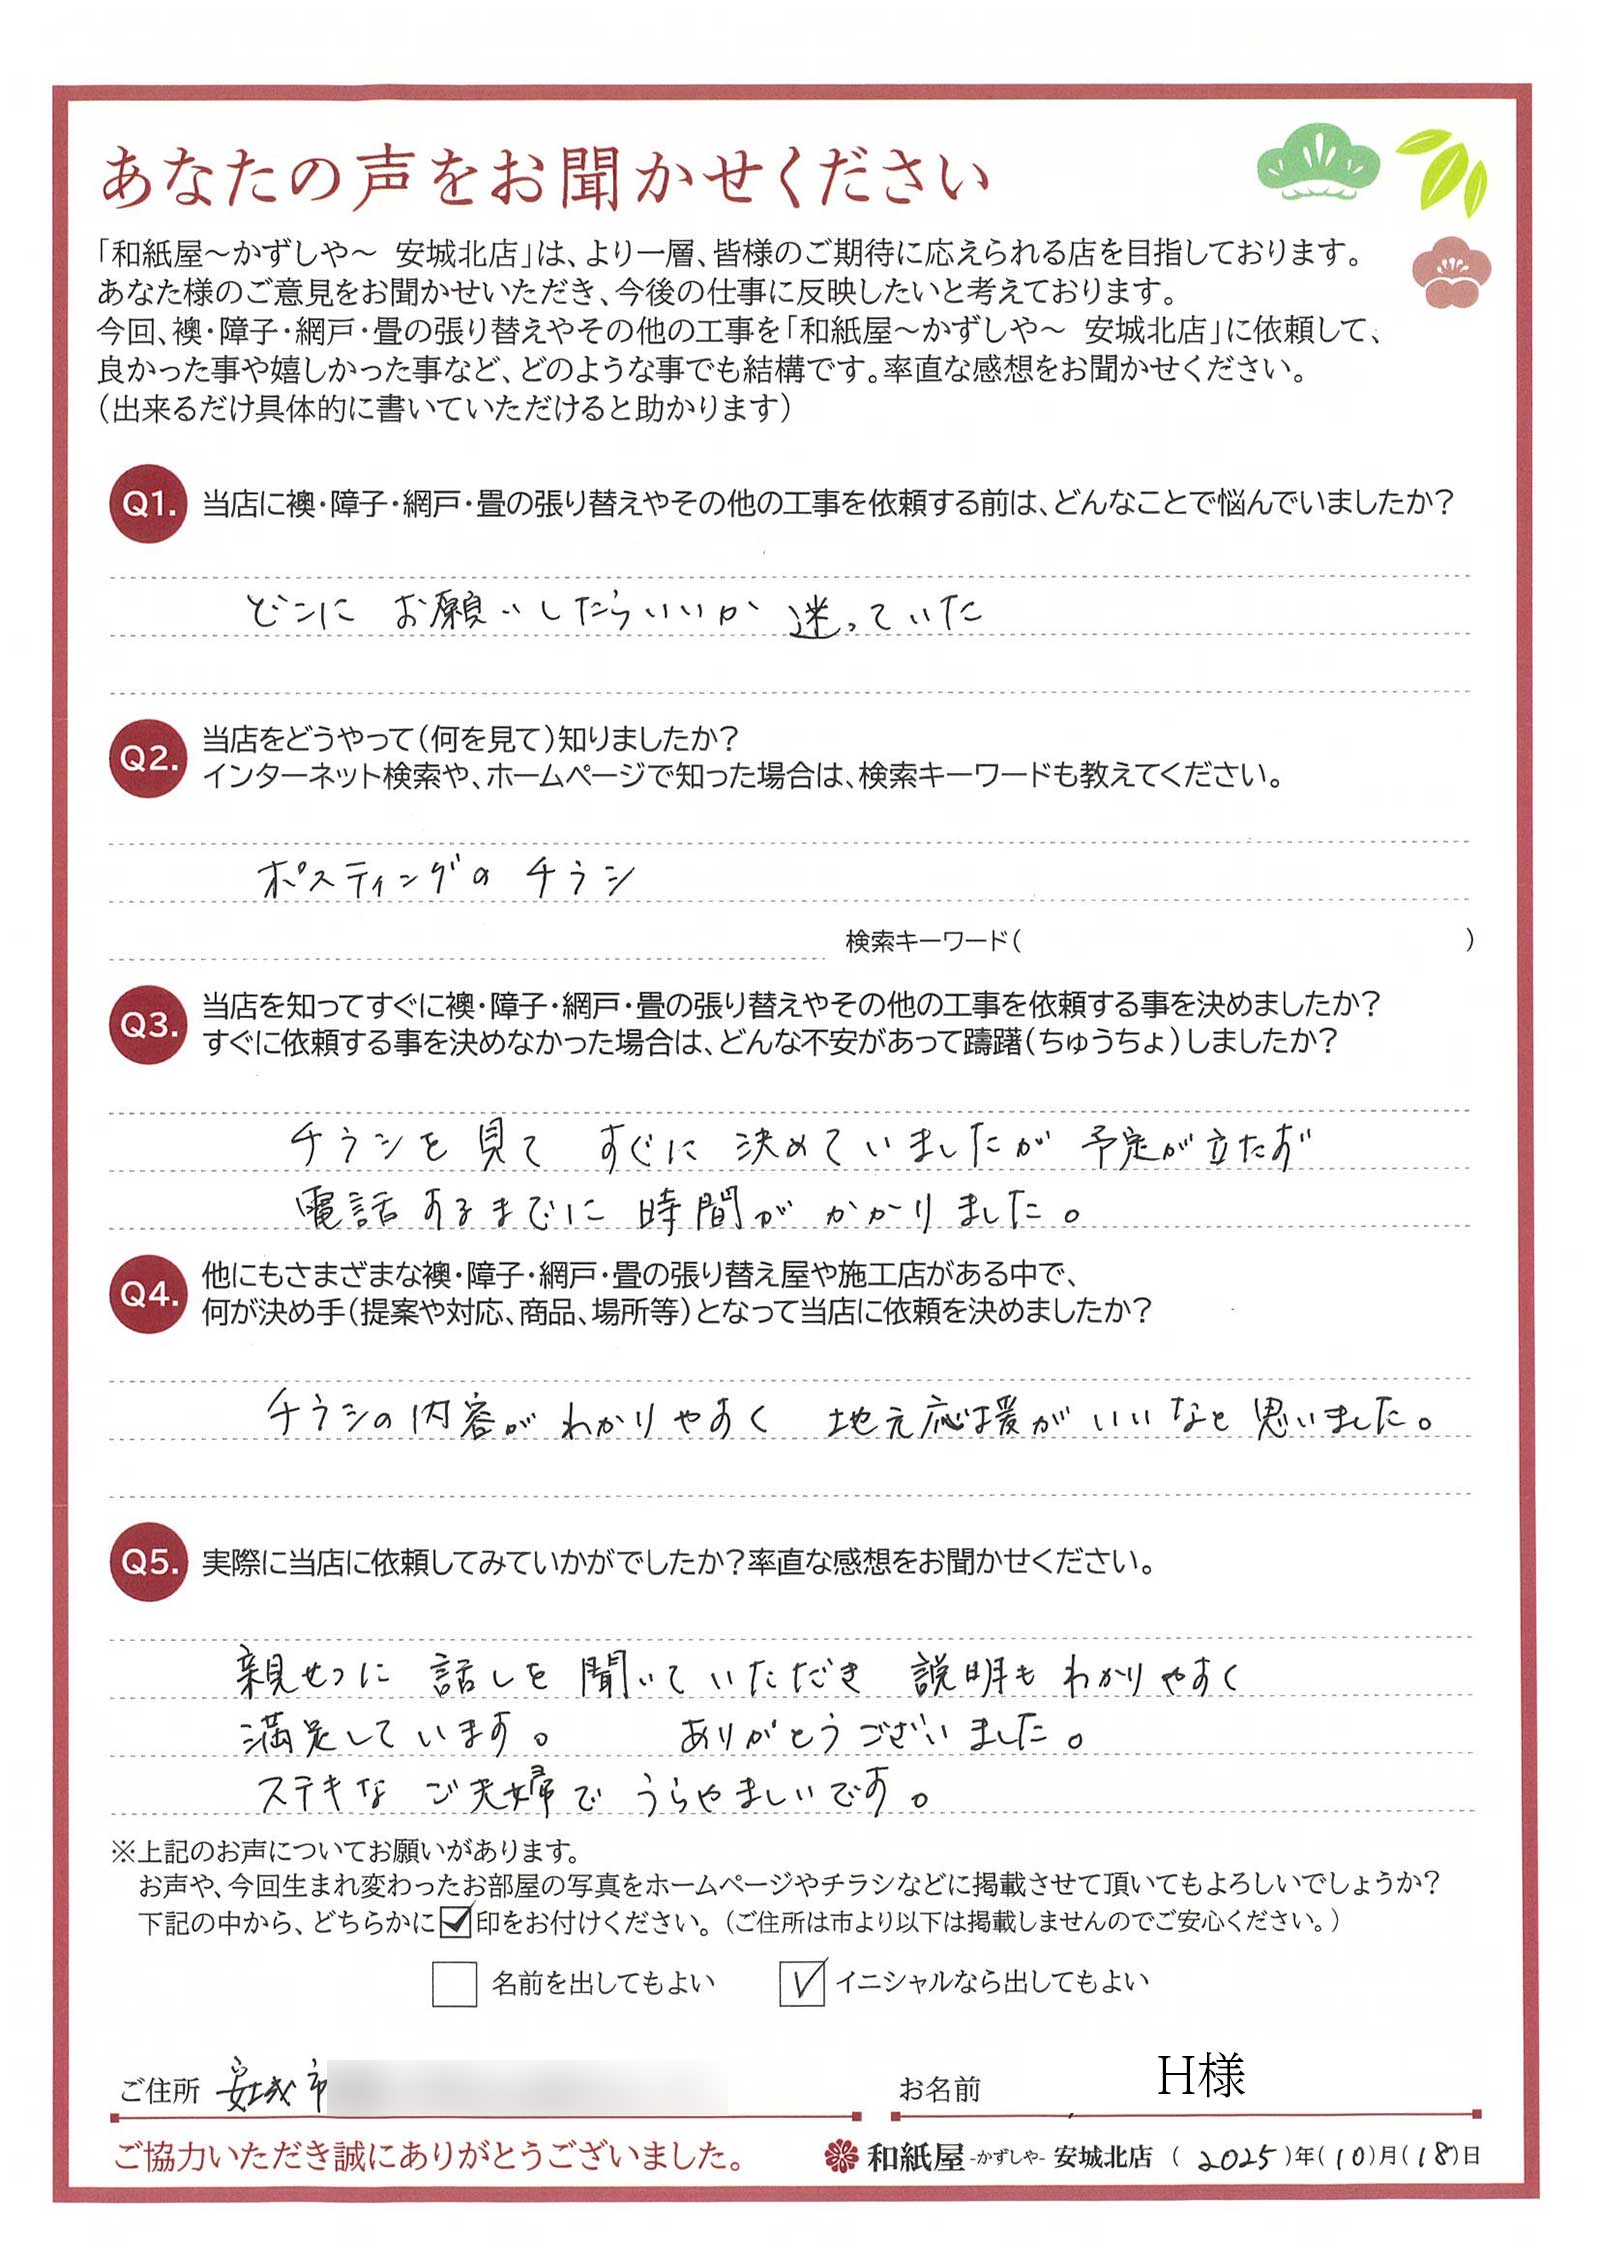 あなたの声をお聞かせください
「和紙屋～かずしや～ 安城北店」は、より一層、皆様のご期待に応えられる店を目指しております。
あなた様のご意見をお聞かせいただき、今後の仕事に反映したいと考えております。
今回、襖・障子・網戸・畳の張り替えやその他の工事を「和紙屋～かずしや～ 安城北店」に依頼して、
良かった事や嬉しかった事など、どのような事でも結構です。率直な感想をお聞かせください。
（出来るだけ具体的に書いていただけると助かります）
Q1. 当店に襖・障子・網戸・畳の張り替えやその他の工事を依頼する前は、どんなことで悩んでいましたか？
どこに お願いしたらいいか 迷っていた
Q2. 当店をどうやって（何を見て）知りましたか？
インターネット検索や、ホームページで知った場合は、検索キーワードも教えてください。
ポスティングの チラシ
検索キーワード（ ）
Q3. 当店を知ってすぐに襖・障子・網戸・畳の張り替えやその他の工事を依頼する事を決めましたか？
すぐに依頼する事を決めなかった場合は、どんな不安があって躊躇（ちゅうちょ）しましたか？
チラシを見て すぐに 決めていましたが 予定が立たず
電話するまでに 時間が かかりました。
Q4. 他にもさまざまな襖・障子・網戸・畳の張り替え屋や施工店がある中で、
何が決め手（提案や対応、商品、場所等）となって当店に依頼を決めましたか？
チラシの内容が わかりやすく 地元応援が いいなと 思いました。
Q5. 実際に当店に依頼してみていかがでしたか？率直な感想をお聞かせください。
親せつに 話しを 聞いていただき 説明も わかりやすく
満足しています。 ありがとうございました。
ステキな ご夫婦で うらやましいです。
※上記のお声についてお願いがあります。
お声や、今回生まれ変わったお部屋の写真をホームページやチラシなどに掲載させて頂いてもよろしいでしょうか？
下記の中から、どちらかに☑印をお付けください。（ご住所は市より以下は掲載しませんのでご安心ください。）
□ 名前を出してもよい ☑ イニシャルなら出してもよい
ご住所 安城市 お名前 H様
ご協力いただき誠にありがとうございました。 和紙屋 -かずしや- 安城北店 （ 2025 ）年（ 10 ）月（ 18 ）日